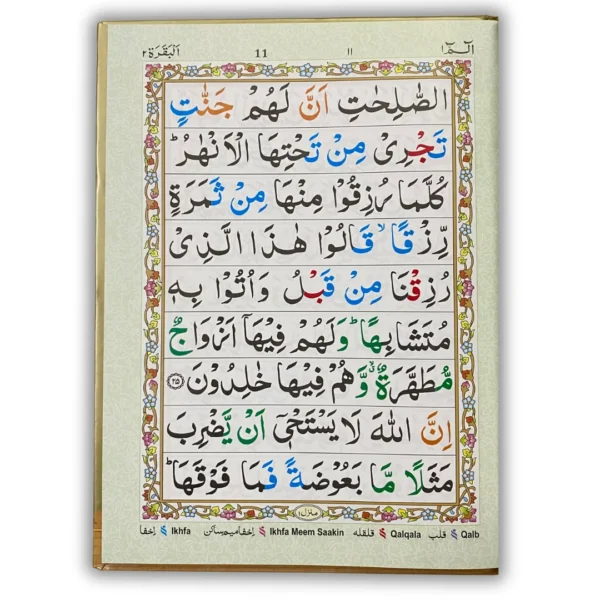 الٓمّٓ ١ ١١ 11 اَلْبَقَرَة ٢
الصّٰلِحٰتِ اَنَّ لَهُمْ جَنّٰتٍ
تَجْرِىْ مِنْ تَحْتِهَا الْاَنْهٰرُ ؕ
كُلَّمَا رُزِقُوْا مِنْهَا مِنْ ثَمَرَةٍ
رِّزْقًا ۙ قَالُوْا هٰذَا الَّذِىْ
رُزِقْنَا مِنْ قَبْلُ وَاُتُوْا بِهٖ
مُتَشَابِهًا ؕ وَلَهُمْ فِيْهَآ اَزْوَاجٌ
مُّطَهَّرَةٌ ۙ وَّهُمْ فِيْهَا خٰلِدُوْنَ ﴿۲۵﴾
اِنَّ اللّٰهَ لَا يَسْتَحْىٖٓ اَنْ يَّضْرِبَ
مَثَلًا مَّا بَعُوْضَةً فَمَا فَوْقَهَا ؕ
منزل ١
اِخفا Ikhfa اِخفا میم ساکن Ikhfa Meem Saakin قلقله Qalqala قلب Qalb